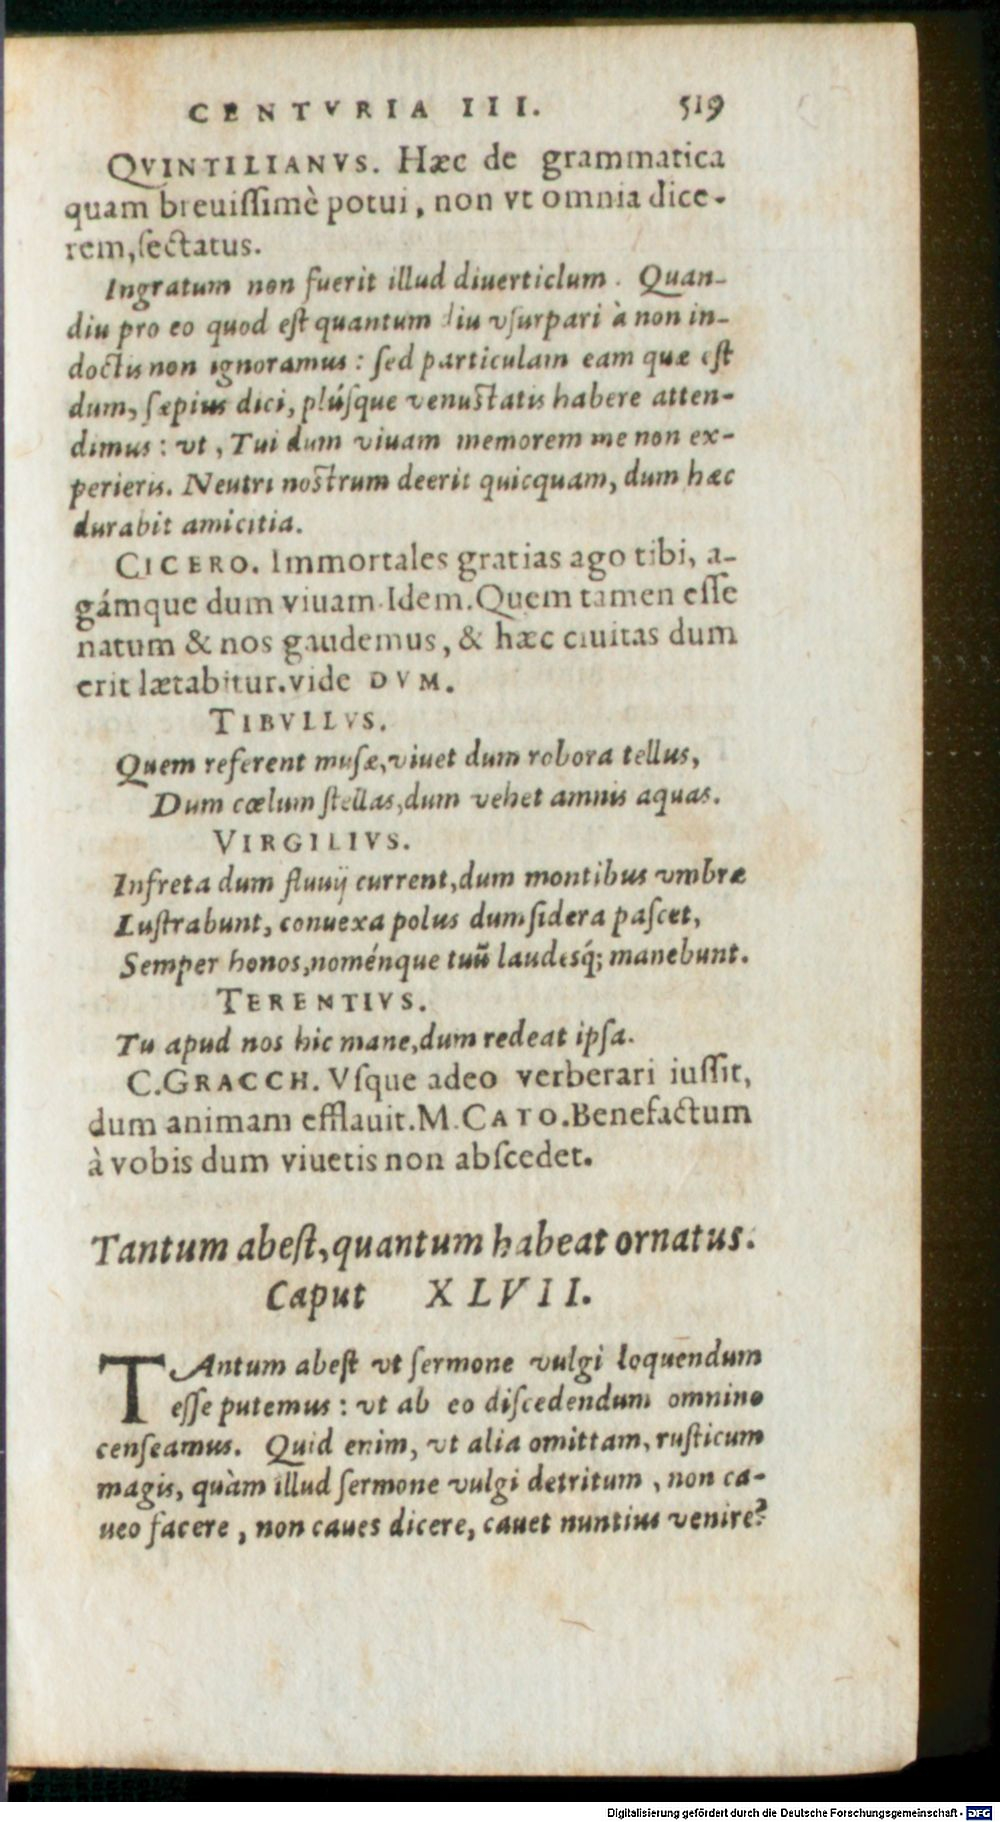 CENTVRIA III. 519
QVINTILIANVS. Hæc de grammatica
quam breuissimè potui, non vt omnia dice-
rem, sectatus.
Ingratum non fuerit illud diuerticlum. Quan-
diu pro eo quod est quantum diu vsurpari à non in-
doctis non ignoramus: sed particulam eam quæ est
dum, sæpius dici, plúsque venustatis habere atten-
dimus: vt, Tui dum viuam memorem me non ex-
perieris. Neutri nostrum deerit quicquam, dum hæc
durabit amicitia.
CICERO. Immortales gratias ago tibi, a-
gámque dum viuam. Idem. Quem tamen esse
natum & nos gaudemus, & hæc ciuitas dum
erit lætabitur. vide DVM.
TIBVLLVS.
Quem referent musæ, viuet dum robora tellus,
Dum cœlum stellas, dum vehet amnis aquas.
VIRGILIVS.
Infreta dum fluuij current, dum montibus vmbræ
Lustrabunt, conuexa polus dum sidera pascet,
Semper honos, noménque tuũ laudesq́; manebunt.
TERENTIVS.
Tu apud nos hic mane, dum redeat ipsa.
C. GRACCH. Vsque adeo verberari iussit,
dum animam efflauit. M. CATO. Benefactum
à vobis dum viuetis non abscedet.
Tantum abest, quantum habeat ornatus.
Caput XLVII.
TAntum abest vt sermone vulgi loquendum
esse putemus: vt ab eo discedendum omnino
censeamus. Quid enim, vt alia omittam, rusticum
magis, quàm illud sermone vulgi detritum, non ca-
ueo facere, non caues dicere, cauet nuntius venire?
Digitalisierung gefördert durch die Deutsche Forschungsgemeinschaft - DFG